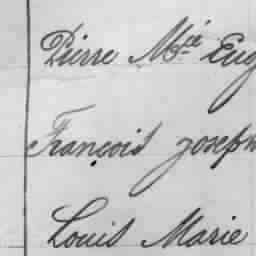 Pierre Mie Eug
François Joseph
Louis Marie